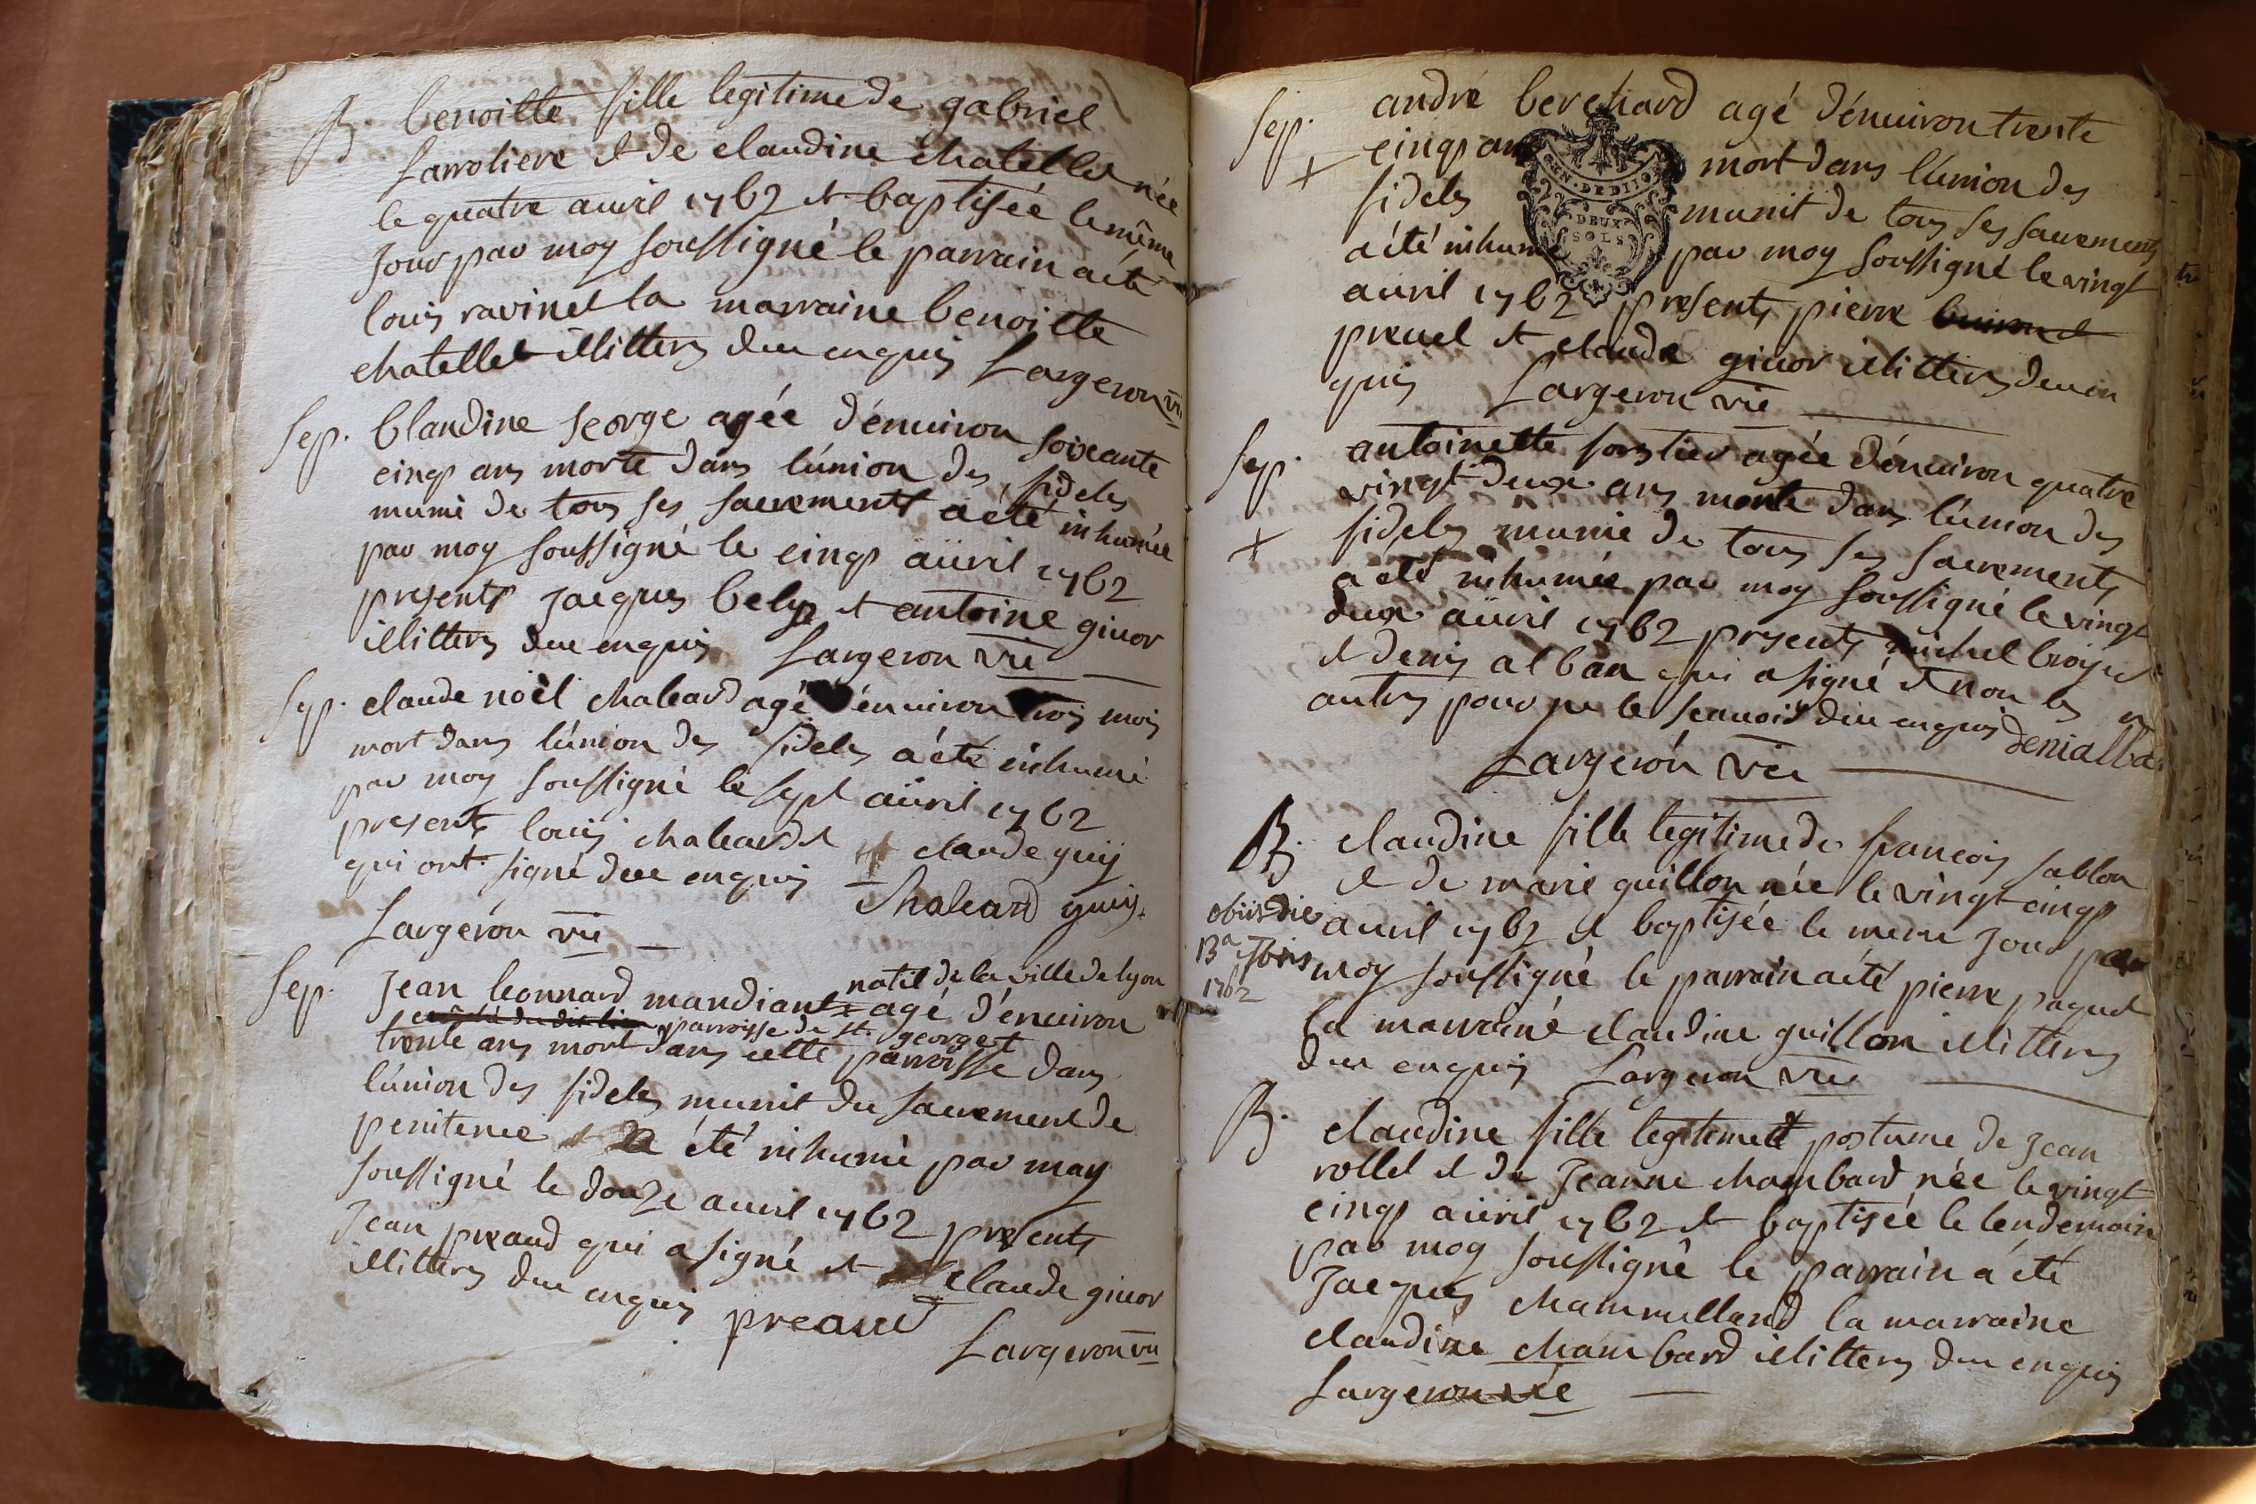 B. benoitte fille legitime de gabriel
Larroliere et de claudine chatellet née
le quatre avvril 1762 et baptisée le même
Jour par moy soussigné le parrain a été
louis ravinel la marraine benoitte
chatellet illitters due enquis Largeron vic
Sep. blandine george agée d'énuiron soixante
cinqs ans morte dans l'union des fideles
munie de tous ses sacrements a été inhumée
par moy soussigné le cinqs auvril 1762
presents jacques bely et antoine giuor
illitters due enquis Largeron vic
Sep. claude noël chaleard agé d'énuiron trois mois
mort dans l'union des fideles a été inhumé
par moy soussigné le sept auvril 1762
presents louis chaleard et claude guij
qui ont signé due enquis Chaleard guij
Largeron vic
natif de la ville de lyon
Sep. Jean leonnard mandiant agé d'énuiron
parroisse de st. george
trente ans mort dans cette parroisse dans
l'union des fideles munit du sacrement de
penitence a été inhumé par moy
soussigné le douze auuril 1762 presents
Jean preaud qui a signé et claude giuor
illitters due enquis preaud
Largeron vic
Sep. andré berchard agé d'énuiron trente
cinqs ans mort dans l'union des
fideles munit de tous ses sacrements
a été inhumé par moy soussigné le vingt
auvril 1762 presents pierre
preuel et claude giuor illitters due en
quis Largeron vic
GEN. DE DIJON
DEUX
SOLS
Sep. antoinette forestier agée d'énuiron quatre
vingt deux ans morte dans l'union des
fideles munie de tous ses sacrements
a été inhumée par moy soussigné le vingt
deux auvril 1762 presents michel broyet
et denis alban qui a signé et non les
autres pour ne le scauoir due enquis denialba
Largeron vic
B. claudine fille legitime de francois sablon
et de marie guillon née le vingt cinqs
auvril 1762 et baptisée le meme jour par
moy soussigné le parrain a été pierre paquet
la marraine claudine guillon illitters
due enquis Largeron vic
obiit die
13a 7bris
1762
B. claudine fille legitime et postume de Jean
rollet et de Jeanne chambard née le vingt
cinqs auvril 1762 et baptisée le lendemain
par moy soussigné le parrain a été
Jacques chammelland la marraine
claudine chambard illitters due enquis
Largeron vic